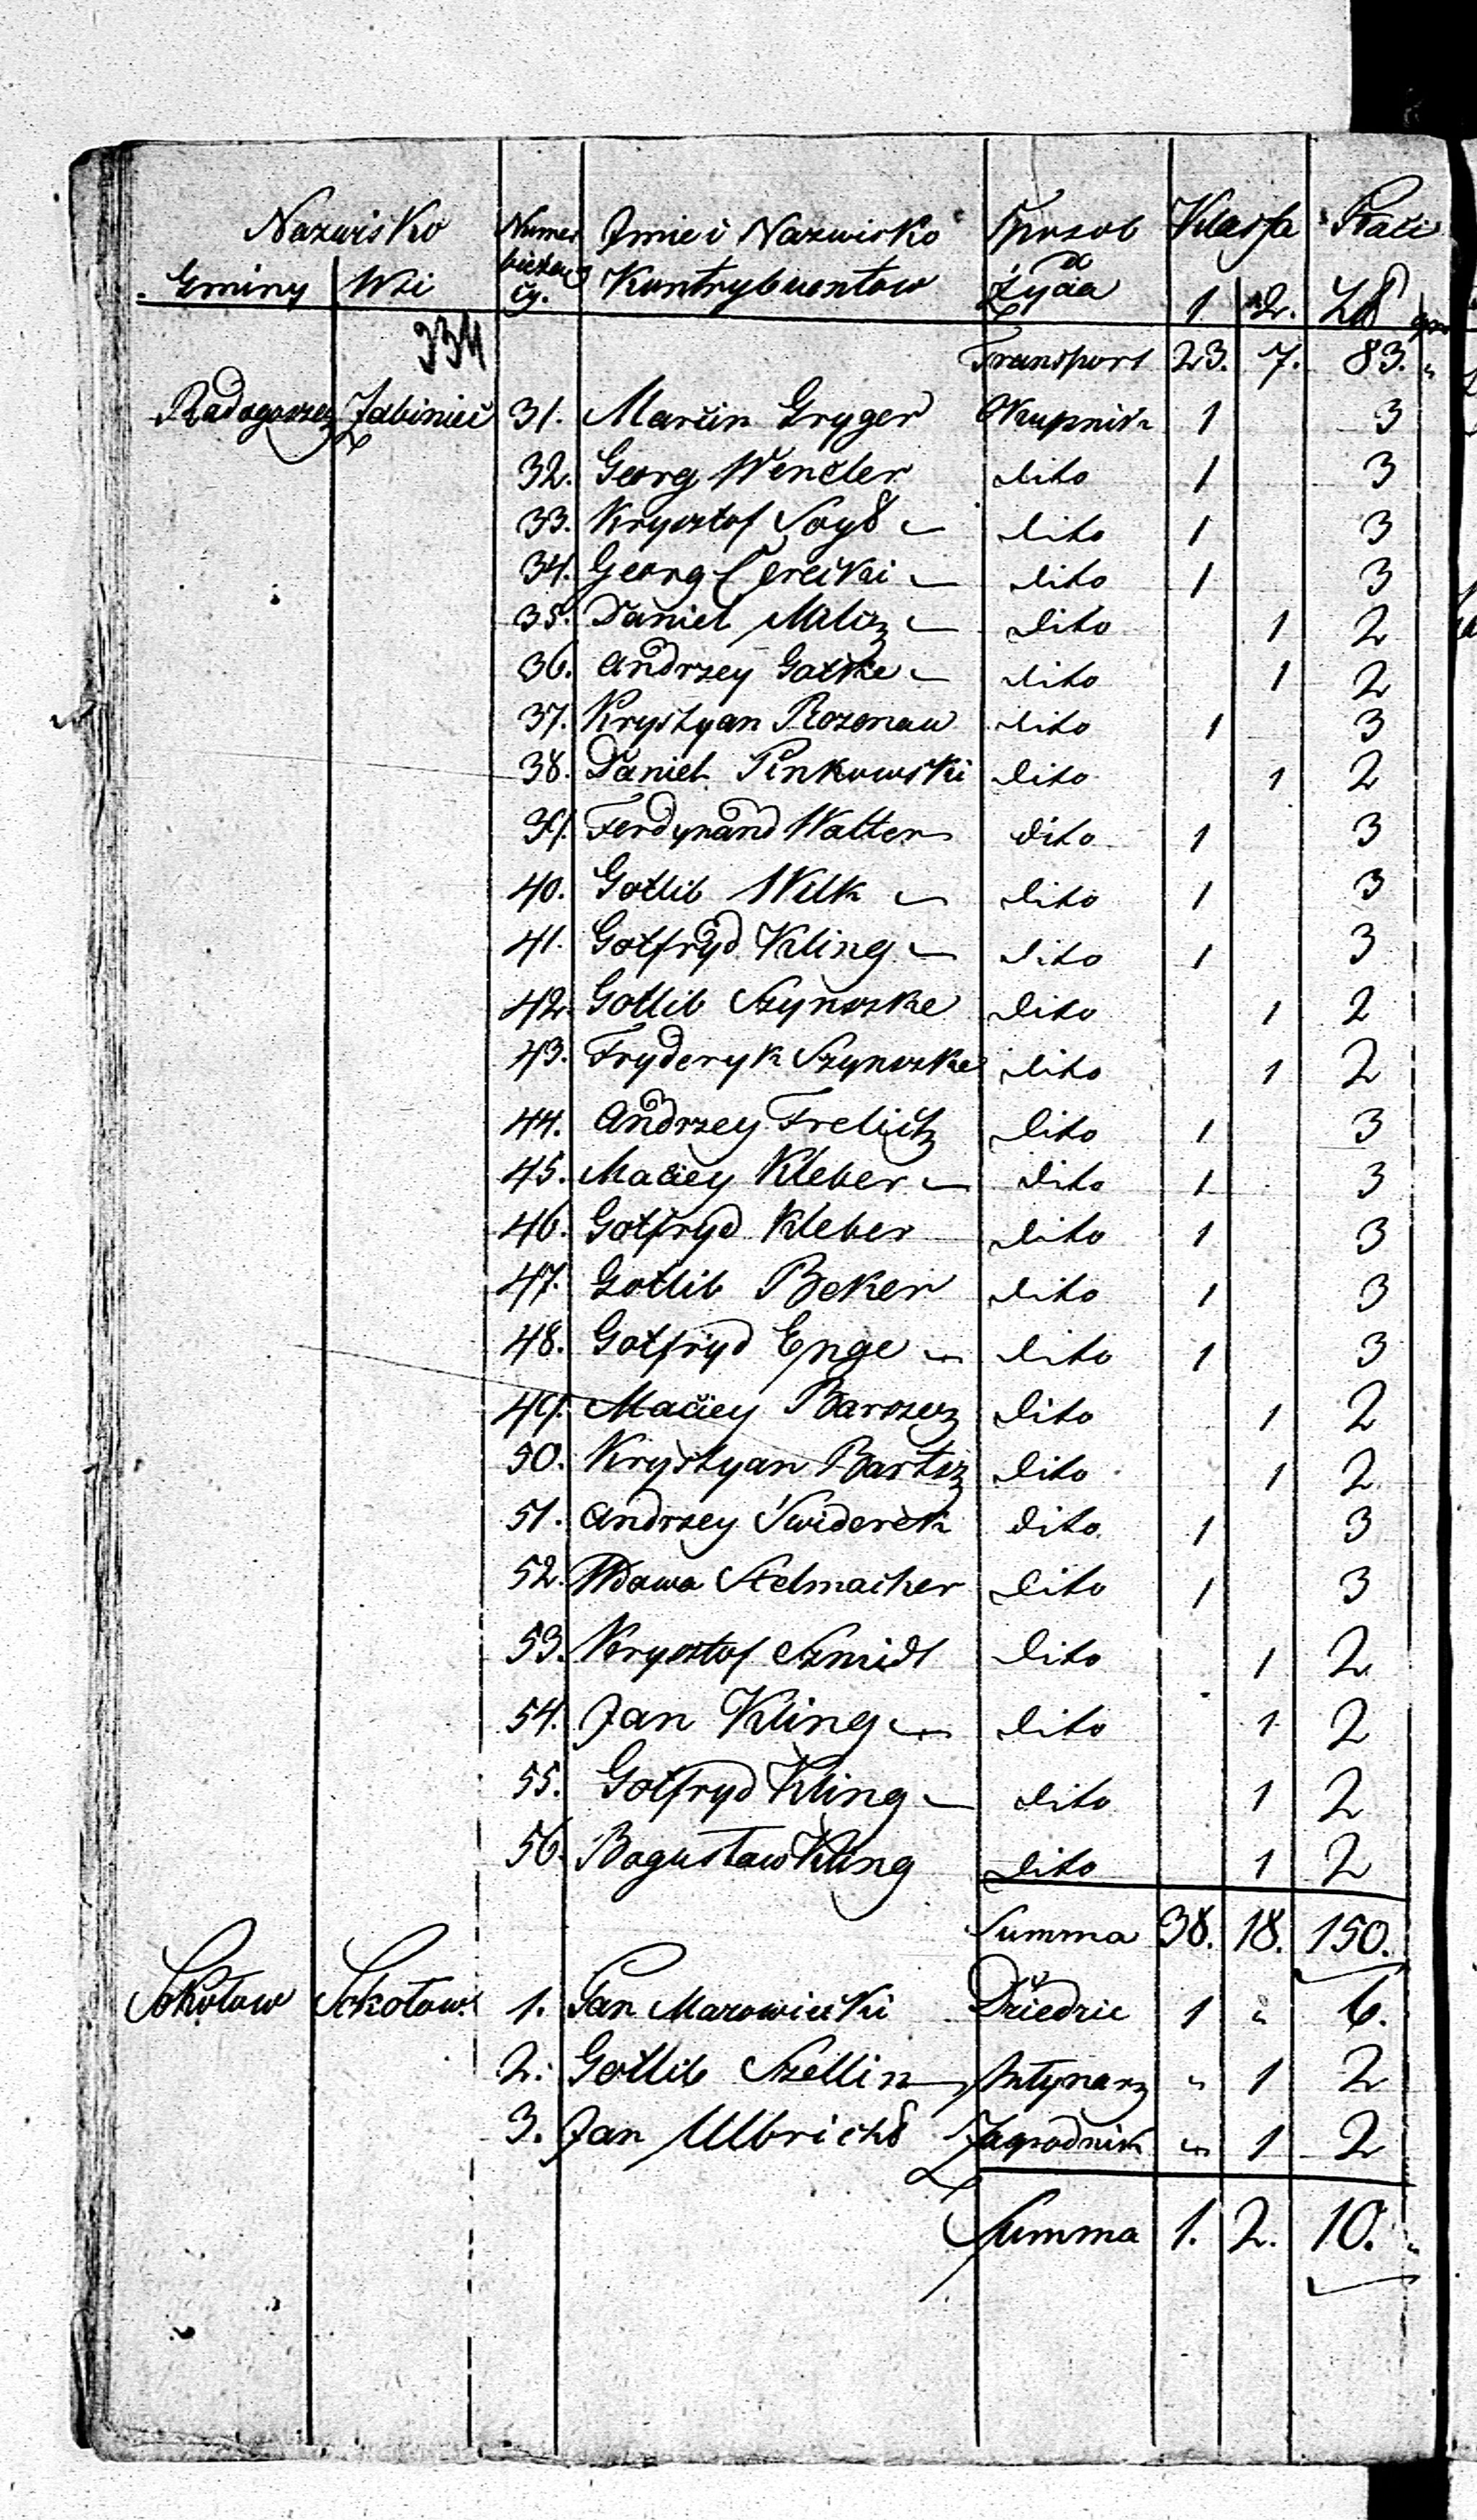 Nazwisko Numer Imie i Nazwisko Sposob Klassa Płaci
Gminy Wsi bieżący. Kontrybuentow Życia 1 2. Zł gr
334
Transport 23. 7. 83. "
Radogoszcz Żabiniec 31. Marcin Gryger Okupnik 1 3
32. Georg Wencler dito 1 3
33. Krysztof Soyß dito 1 3
34. Georg dito 1 3
35. Daniel Milisz dito 1 2
36. Andrzey Gatke dito 1 2
37. Krystyan Rozenau dito 1 3
38. Daniel Pinkowski dito 1 2
39. Ferdynand Walter dito 1 3
40. Gotlib Wilk dito 1 3
41. Gotfryd Kling dito 1 3
42. Gotlib Szynszke dito 1 2
43. Fryderyk Szynszke dito 1 2
44. Andrzey Frelich dito 1 3
45. Maciey Kleber dito 1 3
46. Gotfryd Kleber dito 1 3
47. Gotlib Beker dito 1 3
48. Gotfryd Enge dito 1 3
49. Maciey dito 1 2
50. Krystyan Bartsz dito 1 2
51. Andrzey Swiderek dito 1 3
52. Wdowa Stelmacher dito 1 3
53. Krysztof Szmidt dito 1 2
54. Jan Kling dito 1 2
55. Gotfryd Kling dito 1 2
56. Bogusław Kling dito 1 2
Summa 38. 18. 150.
Sokołow Sokołow 1. Pan Mazowiecki Dziedzic 1 " 6.
2. Gotlib Szellin Młynarz " 1 2
3. Jan Ulbrichß Zagrodnik " 1 2
Summa 1. 2. 10. "